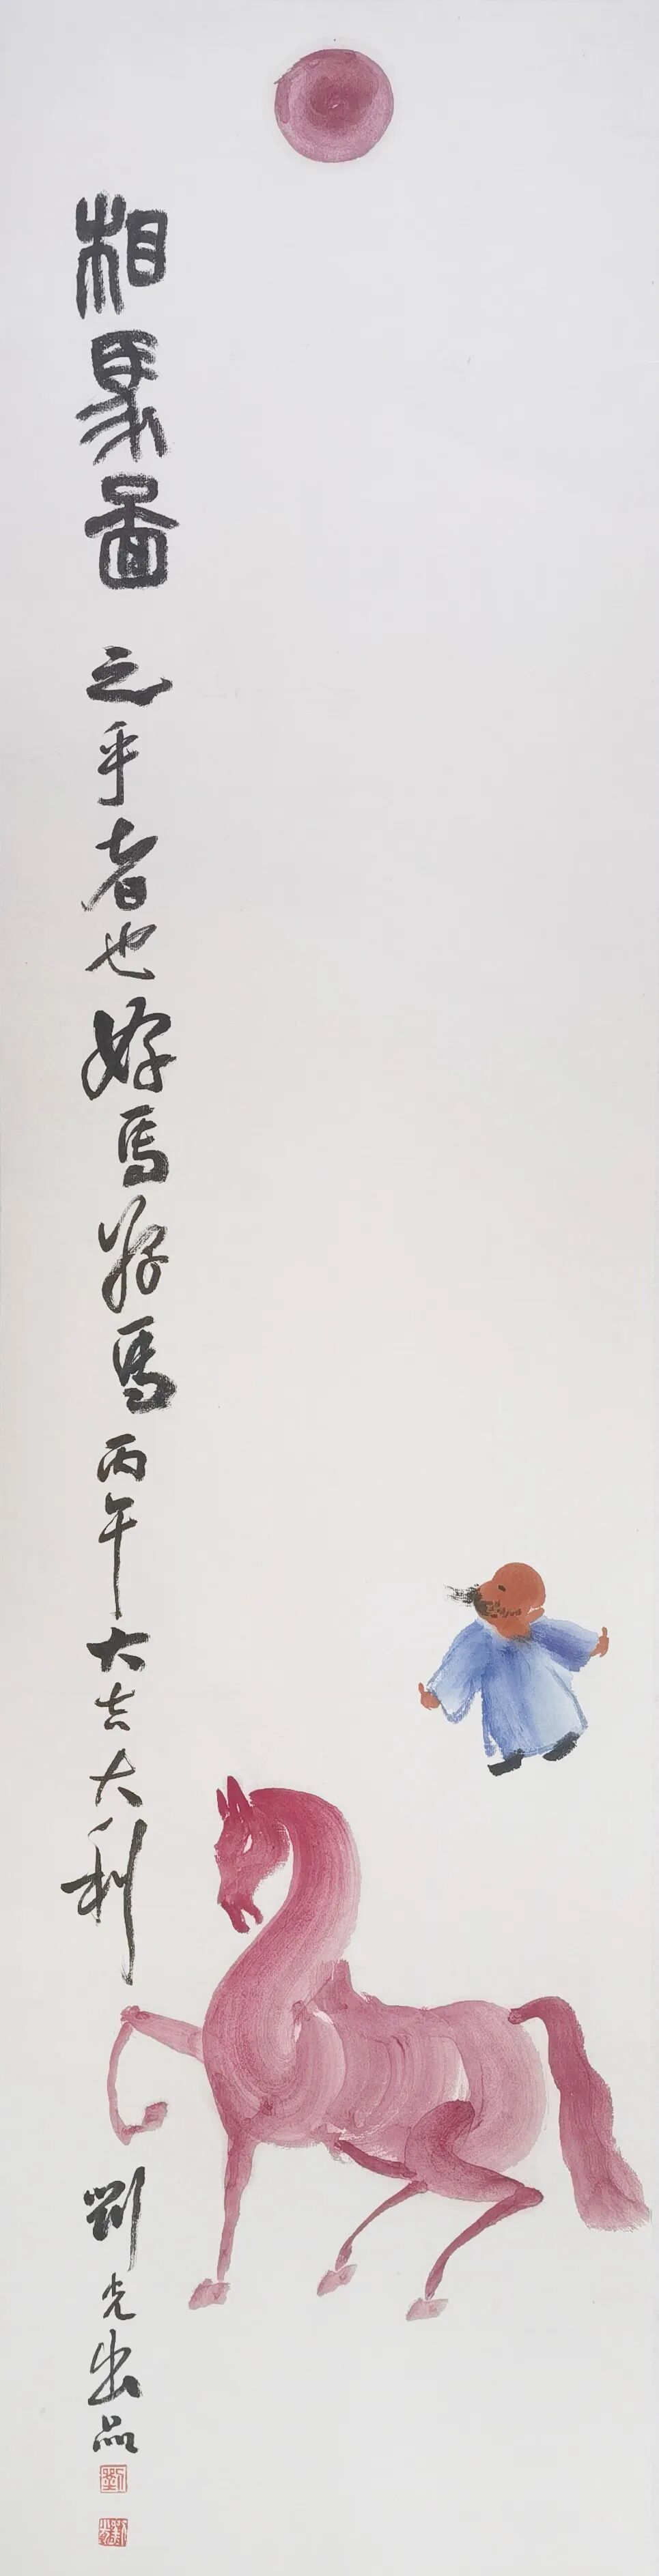 相馬圖 之乎者也好馬好馬丙午大吉大利
劉光出品